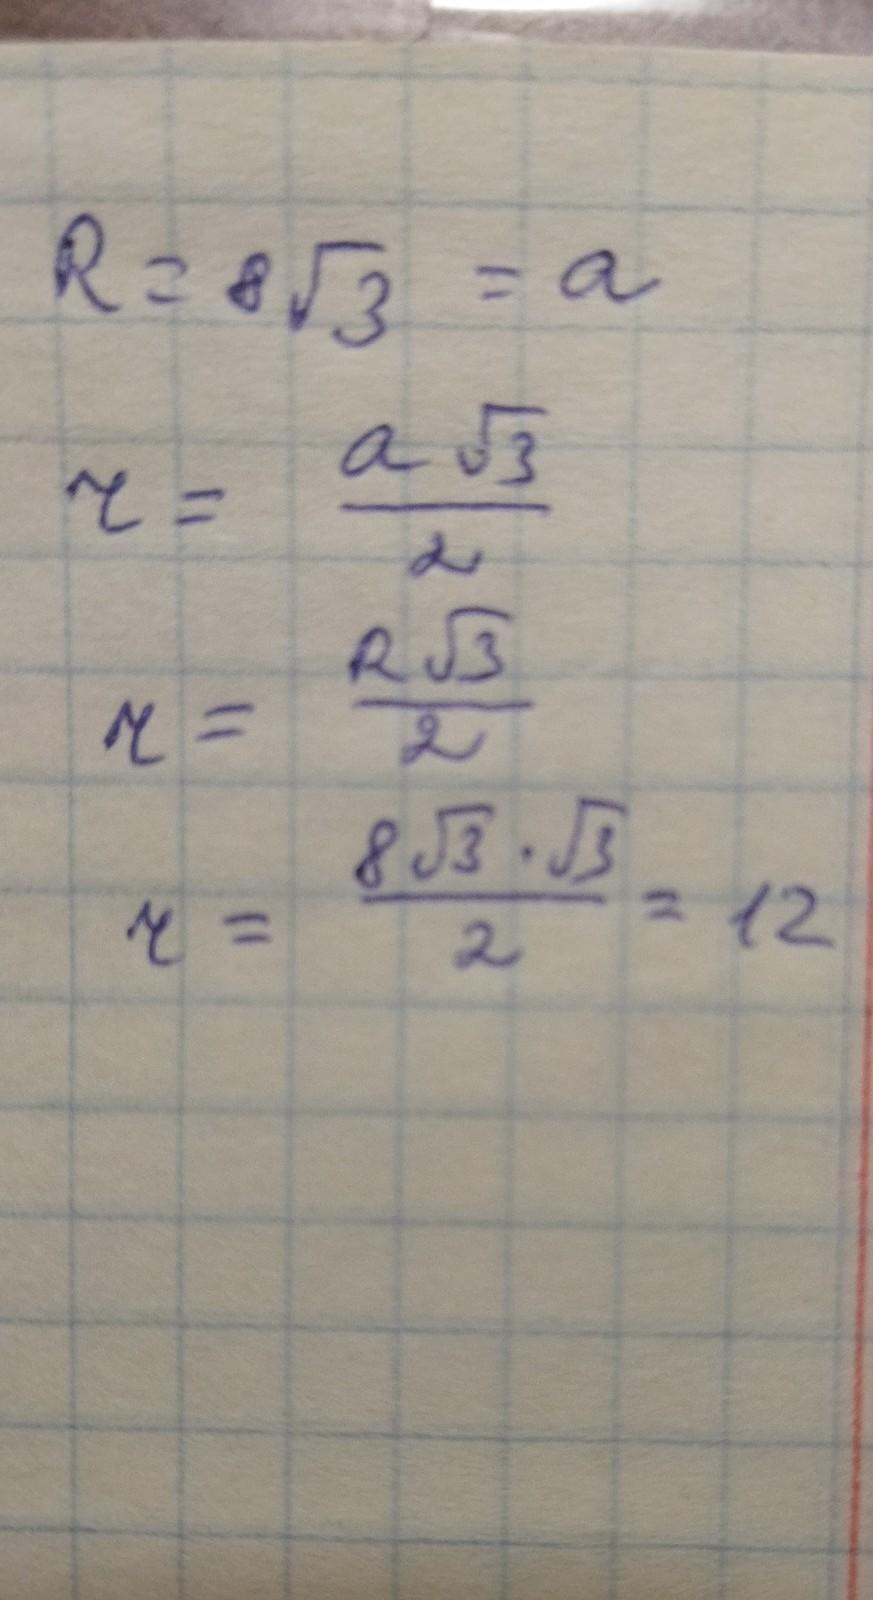 R = 8√3 = a
r = a√3/2
r = R√3/2
r = 8√3 · √3/2 = 12